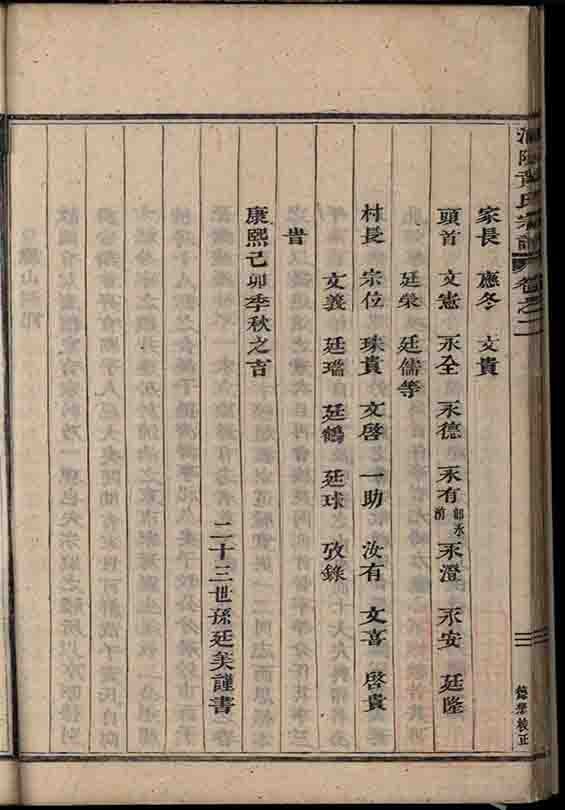 氏宗譜 卷之二
家長 應冬 文貴
頭首 文憲 永全 永德 永有 永澄 永安 廷隆
廷榮 廷儒等
村長 宗位 珠貴 文啓 一助 汝有 文喜 啓貴
文義 廷璠 廷鶴 廷球 攷錄
旹
康熙己卯季秋之吉
二十三世孫廷美謹書
校正